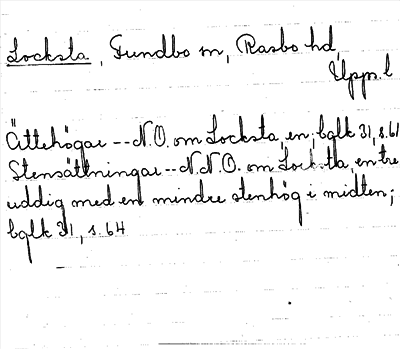 Locksta, Funbo sn, Rasbo hd,
Upps. l
Ättehögar -- N.O. om Locksta, en; bglk 31, s. 61
Stensättningar -- N.N.O. om Locksta, en tre
uddig med en mindre stenhög i midten;
bglk 31, s. 64